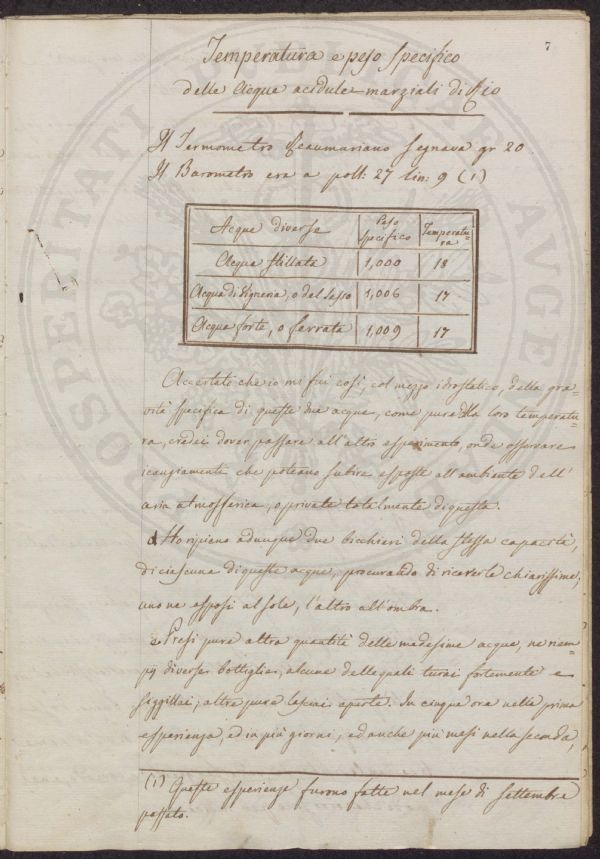 7
Temperatura e peso specifico
delle Acque acidule marziali di Cio
Il Termometro Reaumuriano segnava gr 20
Il Barometro era a poll: 27 lin: 9 (1)
Acque diverse | Peso specifico | Temperatu=ra
Acqua stillata | 1,000 | 18
Acqua di Signeria, o del Sasso | 1,006 | 17
Acqua forte, o ferrata | 1,009 | 17
Accertato che io mi fui così, col mezzo idrostatico, della gra=
vità specifica di queste due acque, come pure della loro temperatu=
ra, credei dover passare all'altro esperimento, onde osservare
i cangiamenti che poteano subire esposte all'ambiente dell'
aria atmosferica, o private totalmente di questa.
1. Ho ripieno adunque due bicchieri della stessa capacità,
di ciascuna di queste acque, procurando di riceverle chiarissime,
uno ne esposi al sole, l'altro all'ombra.
2. Presi pure altra quantità delle medesime acque, ne riem=
pij diverse bottiglie, alcune delle quali turai fortemente e
siggillai; altre pure lasciai aperte. In cinque ore nella prima
esperienza, ed in più giorni, ed anche più mesi nella seconda,
(1) Queste esperienze furono fatte nel mese di settembre
passato.
PROSPERITATI PUBLICAE AUGE